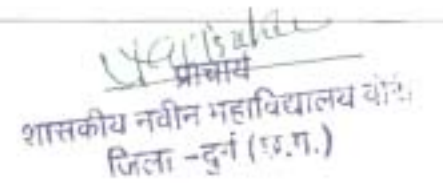 प्राचार्य
शासकीय नवीन महाविद्यालय
जिला -दुर्ग (छ.ग.)